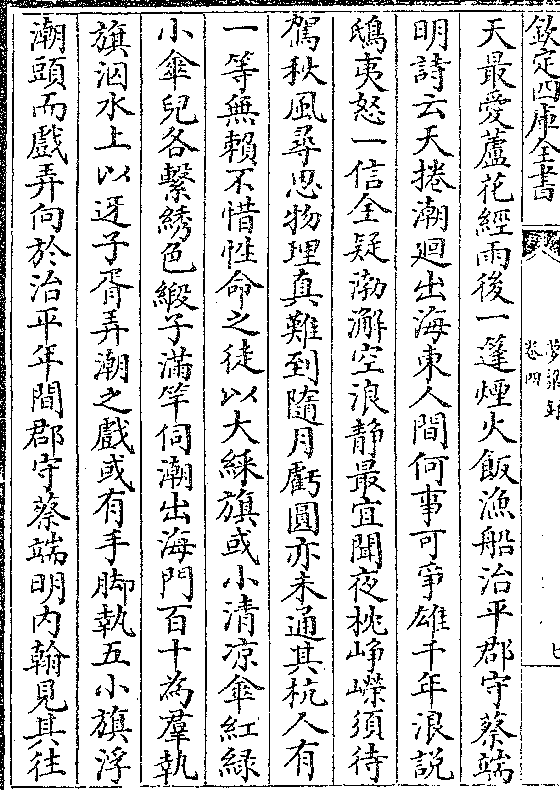 欽定四庫全書
夢粱録
卷四
七
天最愛蘆花經雨後一蓬煙火飯漁船治平郡守蔡端
明詩云天捲潮廻出海東人間何事可爭雄千年浪説
鴟夷怒一信全疑渤澥空浪静最宜聞夜枕峥嶸須待
駕秋風尋思物理真難到隨月虧圓亦未通其杭人有
一等無賴不惜性命之徒以大綵旗或小清凉傘紅緑
小傘兒各繫綉色緞子滿竿伺潮出海門百十為羣執
旗泅水上以迓子胥弄潮之戲或有手脚執五小旗浮
潮頭而戲弄向於治平年間郡守蔡端明内翰見其往